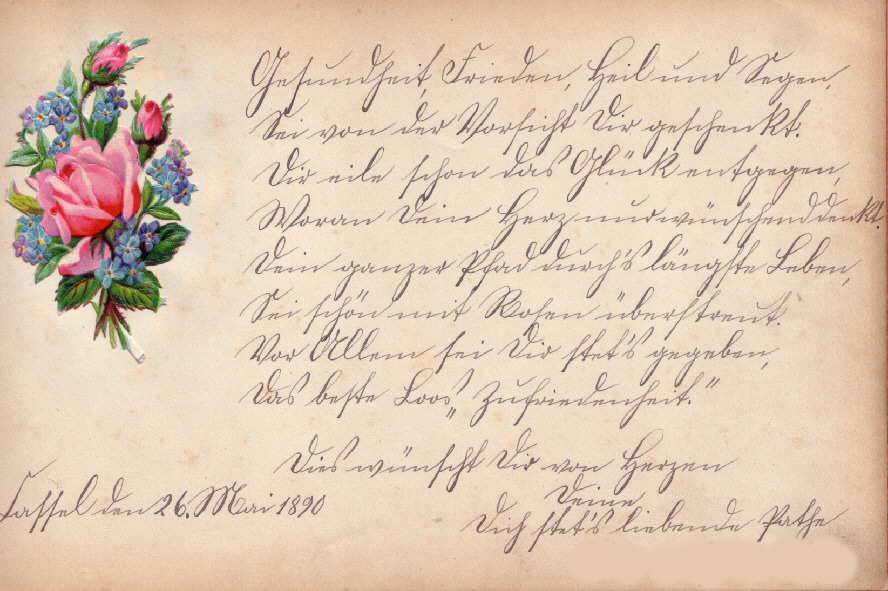 Gesundheit, Frieden, Heil und Segen,
Sei von der Vorsicht Dir geschenkt.
Dir eile schon das Glück entgegen,
Woran Dein Herz nur wünschend denkt.
Dein ganzer Pfad durch's längste Leben,
Sei schön mit Rosen überstreut.
Vor Allem sei Dir stet's gegeben,
Das beste Loos „Zufriedenheit.“
Dies wünscht Dir von Herzen
Deine
Cassel den 26. Mai 1890
Dich stet's liebende Pathe